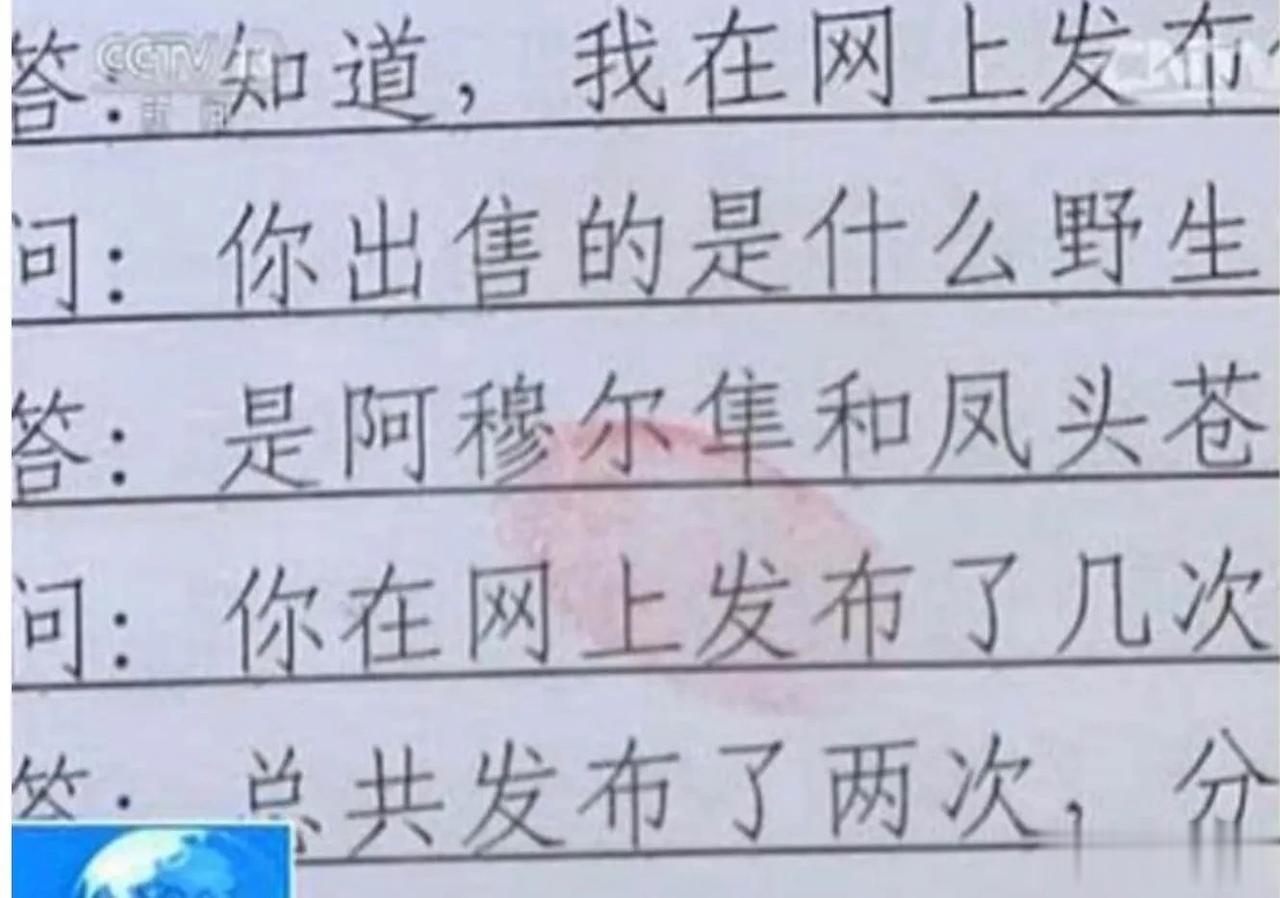 CCTV 13
新闻
答：知道，我在网上发布
问：你出售的是什么野生
答：是阿穆尔隼和凤头苍
问：你在网上发布了几次
答：总共发布了两次，分